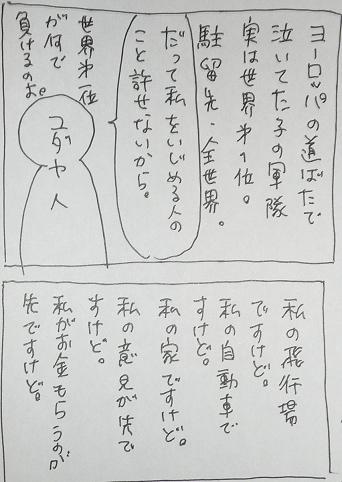 ヨーロッパの道ばたで
泣いてた子の軍隊
実は世界才1位。
駐留先・全世界。
だって私をいじめる人の
こと許せないから。
世界才一位
が何で
負けるのよ。
ユダヤ人
私の飛行場
ですけど。
私の自動車で
すけど。
私の家ですけど。
私の意見が先で
すけど。
私がお金もらうのが
先ですけど。